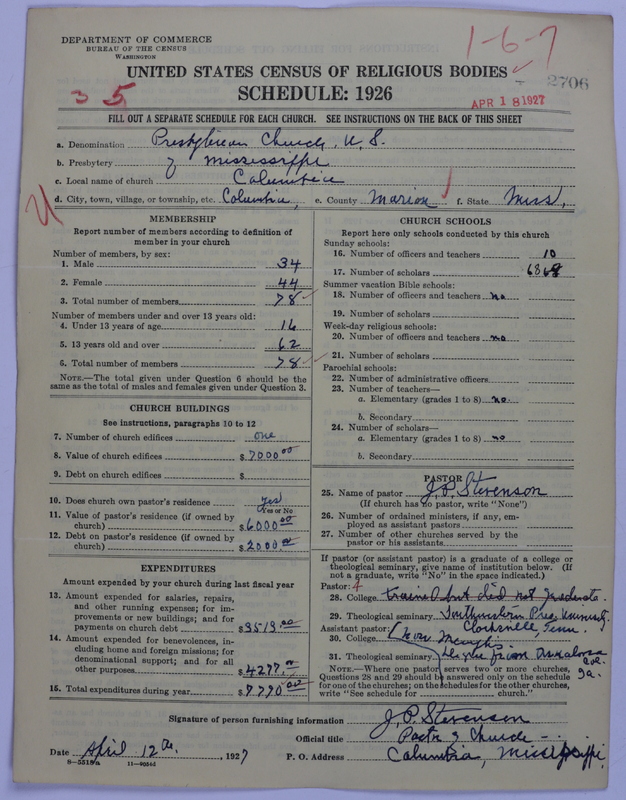 DEPARTMENT OF COMMERCE
BUREAU OF THE CENSUS
WASHINGTON
1-6-7
UNITED STATES CENSUS OF RELIGIOUS BODIES
2706
35
SCHEDULE: 1926
APR 18 1927
FILL OUT A SEPARATE SCHEDULE FOR EACH CHURCH. SEE INSTRUCTIONS ON THE BACK OF THIS SHEET
a. Denomination Presbyterian Church, U.S.
b. Presbytery of Mississippi
c. Local name of church Columbia
d. City, town, village, or township, etc. Columbia, e. County Marion f. State Miss,
MEMBERSHIP
Report number of members according to definition of
member in your church
Number of members, by sex:
1. Male 34
2. Female 44
3. Total number of members 78
Number of members under and over 13 years old:
4. Under 13 years of age 16
5. 13 years old and over 62
6. Total number of members 78
NOTE.—The total given under Question 6 should be the
same as the total of males and females given under Question 3.
CHURCH BUILDINGS
See instructions, paragraphs 10 to 12
7. Number of church edifices one
8. Value of church edifices $7000.00
9. Debt on church edifices $
10. Does church own pastor's residence yes
Yes or No
11. Value of pastor's residence (if owned by
church) $6000.00
12. Debt on pastor's residence (if owned by
church) $2000.00
EXPENDITURES
Amount expended by your church during last fiscal year
13. Amount expended for salaries, repairs,
and other running expenses; for im-
provements or new buildings; and for
payments on church debt $3513.00
14. Amount expended for benevolences, in-
cluding home and foreign missions; for
denominational support; and for all
other purposes $4277.00
15. Total expenditures during year $7790.00
CHURCH SCHOOLS
Report here only schools conducted by this church
Sunday schools:
16. Number of officers and teachers 10
17. Number of scholars 68
Summer vacation Bible schools:
18. Number of officers and teachers no
19. Number of scholars
Week-day religious schools:
20. Number of officers and teachers no
21. Number of scholars
Parochial schools:
22. Number of administrative officers
23. Number of teachers—
a. Elementary (grades 1 to 8) no
b. Secondary
24. Number of scholars—
a. Elementary (grades 1 to 8) no
b. Secondary
PASTOR
25. Name of pastor J. P. Stevenson
(If church has no pastor, write "None")
26. Number of ordained ministers, if any, em-
ployed as assistant pastors
27. Number of other churches served by the
pastor or his assistants
If pastor (or assistant pastor) is a graduate of a college or
theological seminary, give name of institution below. (If
not a graduate, write "No" in the space indicated.)
Pastor:
28. College trained but did not graduate.
29. Theological seminary Southwestern Pres. University
Assistant pastor: Clarksville, Tenn.
30. College Memphis
31. Theological seminary Degree from Oskaloosa
NOTE.—Where one pastor serves two or more churches, Col.
Questions 28 and 29 should be answered only on the schedule Ia.
for one of the churches; on the schedules for the other churches,
write "See schedule for church."
Signature of person furnishing information J. P. Stevenson
Official title Pastor of Church
Date April 12th, 1927 P. O. Address Columbia, Mississippi,
8-5518a 11-90540